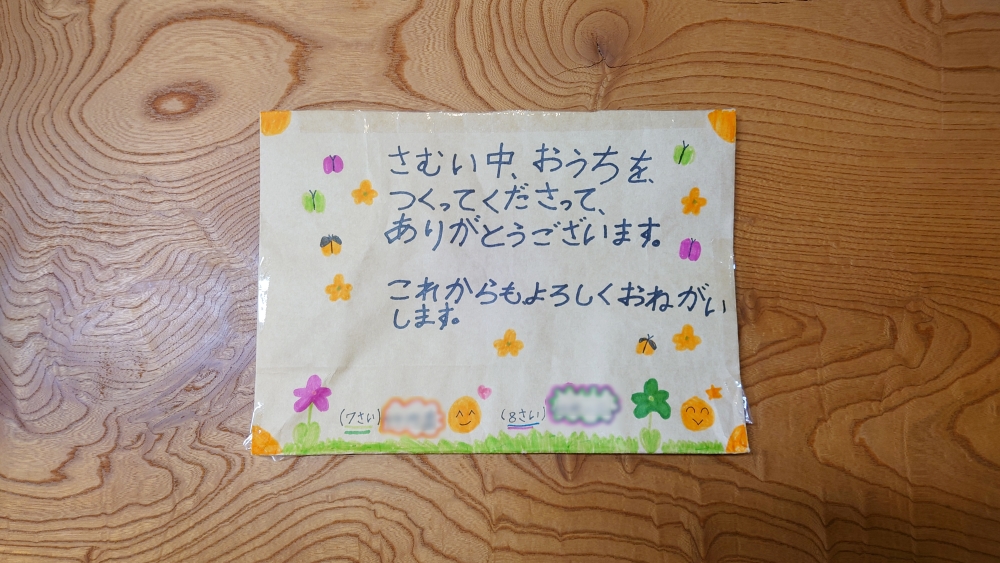 さむい中、おうちを、
つくってくださって、
ありがとうございます。
これからもよろしくおねがい
します。
(7さい) (8さい)